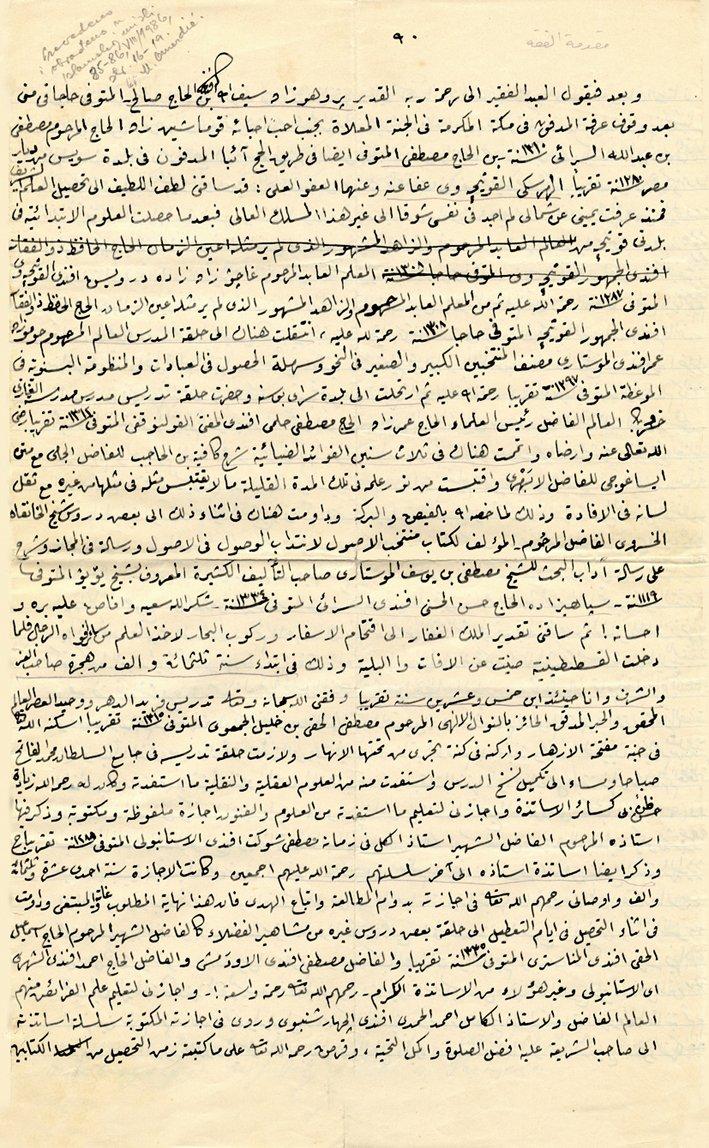 ٩٠
مقدمة الفقه
وبعد فيقول العبد الفقير الى رحمة ربه القدير پروهو زاده سيف الله بن الحاج صالح المتوفى حاجا فى منى
بعد وقوف عرفة المدفون فى مكة المكرمة فى الجنة المعلاة بجنب احب احبائه قوماشين زاده الحاج المرحوم مصطفى
بن عبد الله السرائى سنة ١٣١٠ بن الحاج مصطفى المتوفى ايضا فى طريق الحج آئبا المدفون فى بلدة سويس من ديار
مصر سنة ١٢٨٠ تقريبا الهرسكى الفوينچه وى عفا عنه وعنهما العفو العلى : قد ساقنى لطف اللطيف الى تحصيل العلم الشريف
فمنذ عرفت يمينى عن شمالى لم اجد فى نفسى شوقا الى غير هذا المسلك العالى فبعد ما حصلت العلوم الابتدائية فى
بلدتى فوينچه من العالم العابد المرحوم والزاهد المشهور الذى لم ير مثله اعين الزمان الحاج الحافظ ذو الفقار
افندى الجمهور الفوينچه وى المتوفى حاجا سنة ١٣٠٨ المعلم العابد المرحوم زاده درويش افندى الفوينچه وى
المتوفى سنة ١٢٨٧ رحمة الله عليه ثم من المعلم العابد المرحوم والزاهد المشهور الذى لم ير مثله اعين الزمان الحاج الحافظ ذى الفقار
افندى الجمهور الفوينچه المتوفى حاجا سنة ١٣٠٨ رحمة لله عليه ، انتقلت هناك الى حلقة المدرس العالم المرحوم
عمر افندى الموستارى مصنف المنتخبين الكبير والصغير فى النحو وسهلة الحصول فى العبادات والمنظومة البسنوية فى
الموعظة المتوفى سنة ١٢٩٧ تقريبا رحمة الله عليه ثم ارتحلت الى بلدة سراى بوسنه وحضرت حلقة تدريس مدرس مدرسة الغازى
خسرو بك العالم الفاضل رئيس العلماء الحاج عمر زاده الحاج مصطفى حلمى افندى المفتى المتوفى سنة تقريبا رضى
الله تعالى عنه وارضاه واتممت هناك فى ثلاث سنين الفوائد الضيائية شرح كافية بن الحاجب للفاضل الجامى مع متن
ايساغوجى للفاضل الابهرى واقتبست من نور علمه فى تلك المدة القليلة ما لا يقتبس مثله فى مثلها من غيره مع ثقل
لسانه فى الافادة وذلك لما خصه الله بالفيض والبركة وداومت هناك فى اثناء ذلك الى بعض دروس شيخ الخانقاه
الخسروى الفاضل المرحوم المؤلف لكتاب منتخب الاصول لانتداب الوصول فى الاصول ورسالة فى المجاز وشرح
على رسالة آداب البحث للشيخ مصطفى بن يوسف الموستارى صاحب التأليف الكثيرة المعروف بشيخ يويو المتوفى
سنة ١١١٩ - سپاهيزاده الحاج حسن الحسنى افندى السرائى المتوفى سنة ١٣٣٤ - شكر الله سعيه وافاض عليه بره و
احسانه ! ثم ساقنى تقدير الملك الغفار الى اقتحام الاسفار وركوب البحار لاخذ العلم من افواه الرجال فلما
دخلت القسطنطينية صينت عن الافات والبلية وذلك فى ابتداء سنة ثلثمائة والف من هجرة صاحب العز
والشرف وانا حينئذ ابن خمس وعشرين سنة تقريبا وفقنى الله سبحانه وتعالى تدريس فريد الدهر ووحيد العصر العالم
المحقق والحبر المدقق الحائز بالنوال الالهى المرحوم مصطفى الحقى بن خليل المتوفى سنة ١٣١٥ تقريبا اسكنه الله تعالى
فى جنة مفتحة الازهار واركنه فى كنة تجرى من تحتها الانهار ولازمت حلقة تدريسه فى جامع السلطان محمد الفاتح
صباحا ومساء الى تكميل نسخ الدرس واستفدت منه من العلوم العقلية والنقلية ما استفدت وكان له رحمه الله زيادة
كسائر الاساتذة واجازنى لتعليم ما استفدته من العلوم والفنون اجازة ملفوظة ومكتوبة وذكر فيها
استاذه المرحوم الفاضل الشهير استاذ الكل فى زمانه مصطفى شوكت افندى الاستانبولى المتوفى سنة ١٢٨٩ تقريبا
وذكر ايضا اساتذة استاذه الى آخر سلسلتهم رحمة الله عليهم اجمعين وكانت الاجازة سنة احدى عشرة وثلثمائة
والف واوصانى رحمهم الله تعالى فى اجازته بدوام المطالعة واتباع الهدى فان هذا نهاية المطلوب غاية المبتغى وداومت
فى اثناء التحصيل فى ايام التعطيل الى حلقة بعض دروس غيره من مشاهير الفضلاء كالفاضل الشهير المرحوم الحاج اسماعيل
الحقى افندى المناسترى المتوفى سنة ١٣٣٥ تقريبا والفاضل مصطفى افندى الاودمشى والفاضل الحاج احمد افندى الشهرى
اى الاستانبولى وغير هؤلاء من الاساتذة الكرام - رحمهم الله تعالى رحمة واسعة ! واجازنى لتعليم علم الفرائض منهم
العالم الفاضل والاستاذ الكامل احمد الحمدى افندى الچهارشنبوى وروى فى اجازته المكتوبة سلسلة اساتذته
الى صاحب الشريعة عليه افضل الصلوة واكمل التحية ، وقرض رحمه الله تعالى على ما كتبته زمن التحصيل من الكتابين